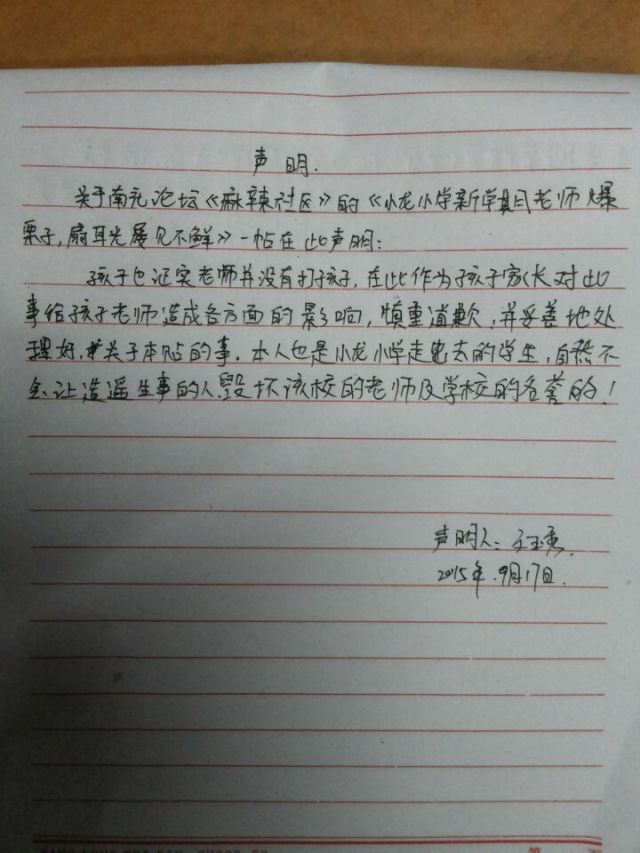 声明.
关于南充论坛《麻辣社区》的《小龙小学新学期老师爆
栗子,扇耳光屡见不鲜》一帖在此声明:
孩子也证实老师并没有打孩子,在此作为孩子家长对此
事给孩子老师造成各方面的影响,慎重道歉,并妥善地处
理好,关于本贴的事.本人也是小龙小学走出去的学生,自然不
会让造遥生事的人毁坏该校的老师及学校的名誉的!
声明人:王玉秀.
2015年.9月17日.
第